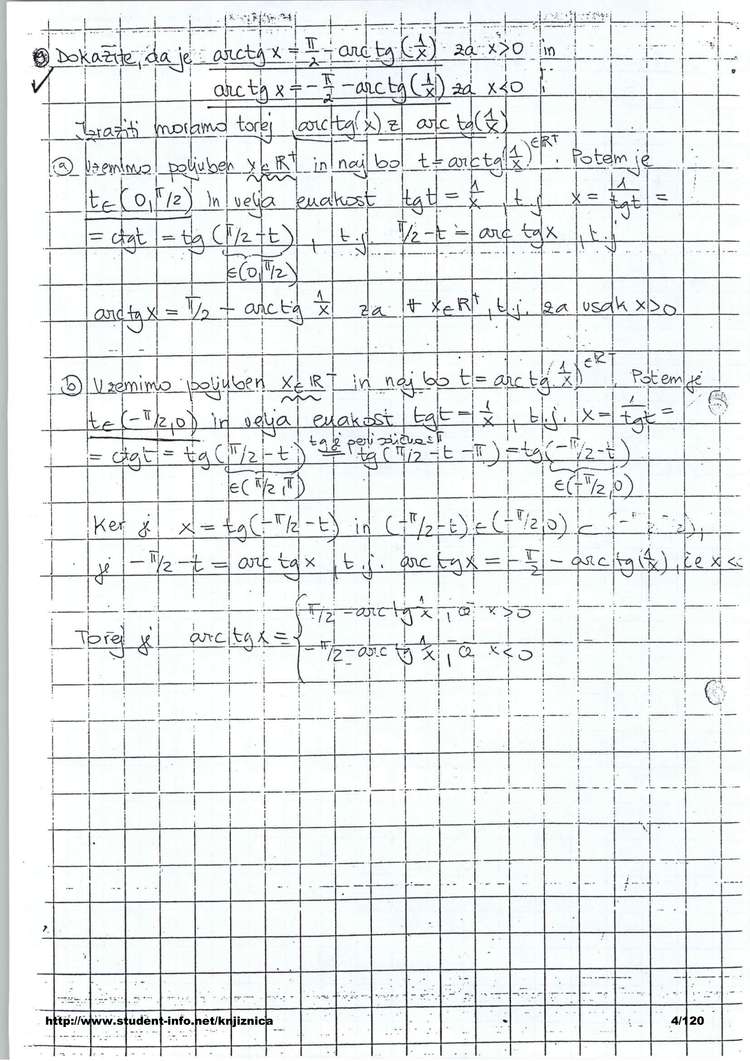 Dokažite, da je arctg x = π/2 - arctg(1/x) za x>0 in
arctg x = -π/2 - arctg(1/x) za x<0
Izraziti moramo torej arctg(x) z arctg(1/x)
a) Vzemimo poljuben x∈ℝ⁺ in naj bo t = arctg(1/x)^∈ℝ⁺. Potem je
t∈(0,π/2) in velja enakost tgt = 1/x, t.j. x = 1/tgt =
= ctgt = tg(π/2-t), t.j. π/2-t = arc tgx, t.j
∈(0,π/2)
arctgx = π/2 - arctg 1/x za ∀ x∈ℝ⁺, t.j. za vsak x>0
b) Vzemimo poljuben x∈ℝ⁻ in naj bo t = arctg(1/x)^∈ℝ⁻. Potem je
t∈(-π/2,0) in velja enakost tgt = 1/x, t.j. x = 1/tgt =
tg je periodična s π
= ctgt = tg(π/2-t) = tg(π/2-t-π) = tg(-π/2-t)
∈(π/2,π) ∈(-π/2,0)
Ker je x = tg(-π/2-t) in (-π/2-t)∈(-π/2,0) ⊂
je -π/2-t = arc tgx, t.j. arc tgx = -π/2 - arc tg(1/x), če x<
Torej je arc tgx = { π/2 - arc tg 1/x, če x>0
-π/2 - arc tg 1/x, če x<0
http://www.student-info.net/knjiznica 4/120